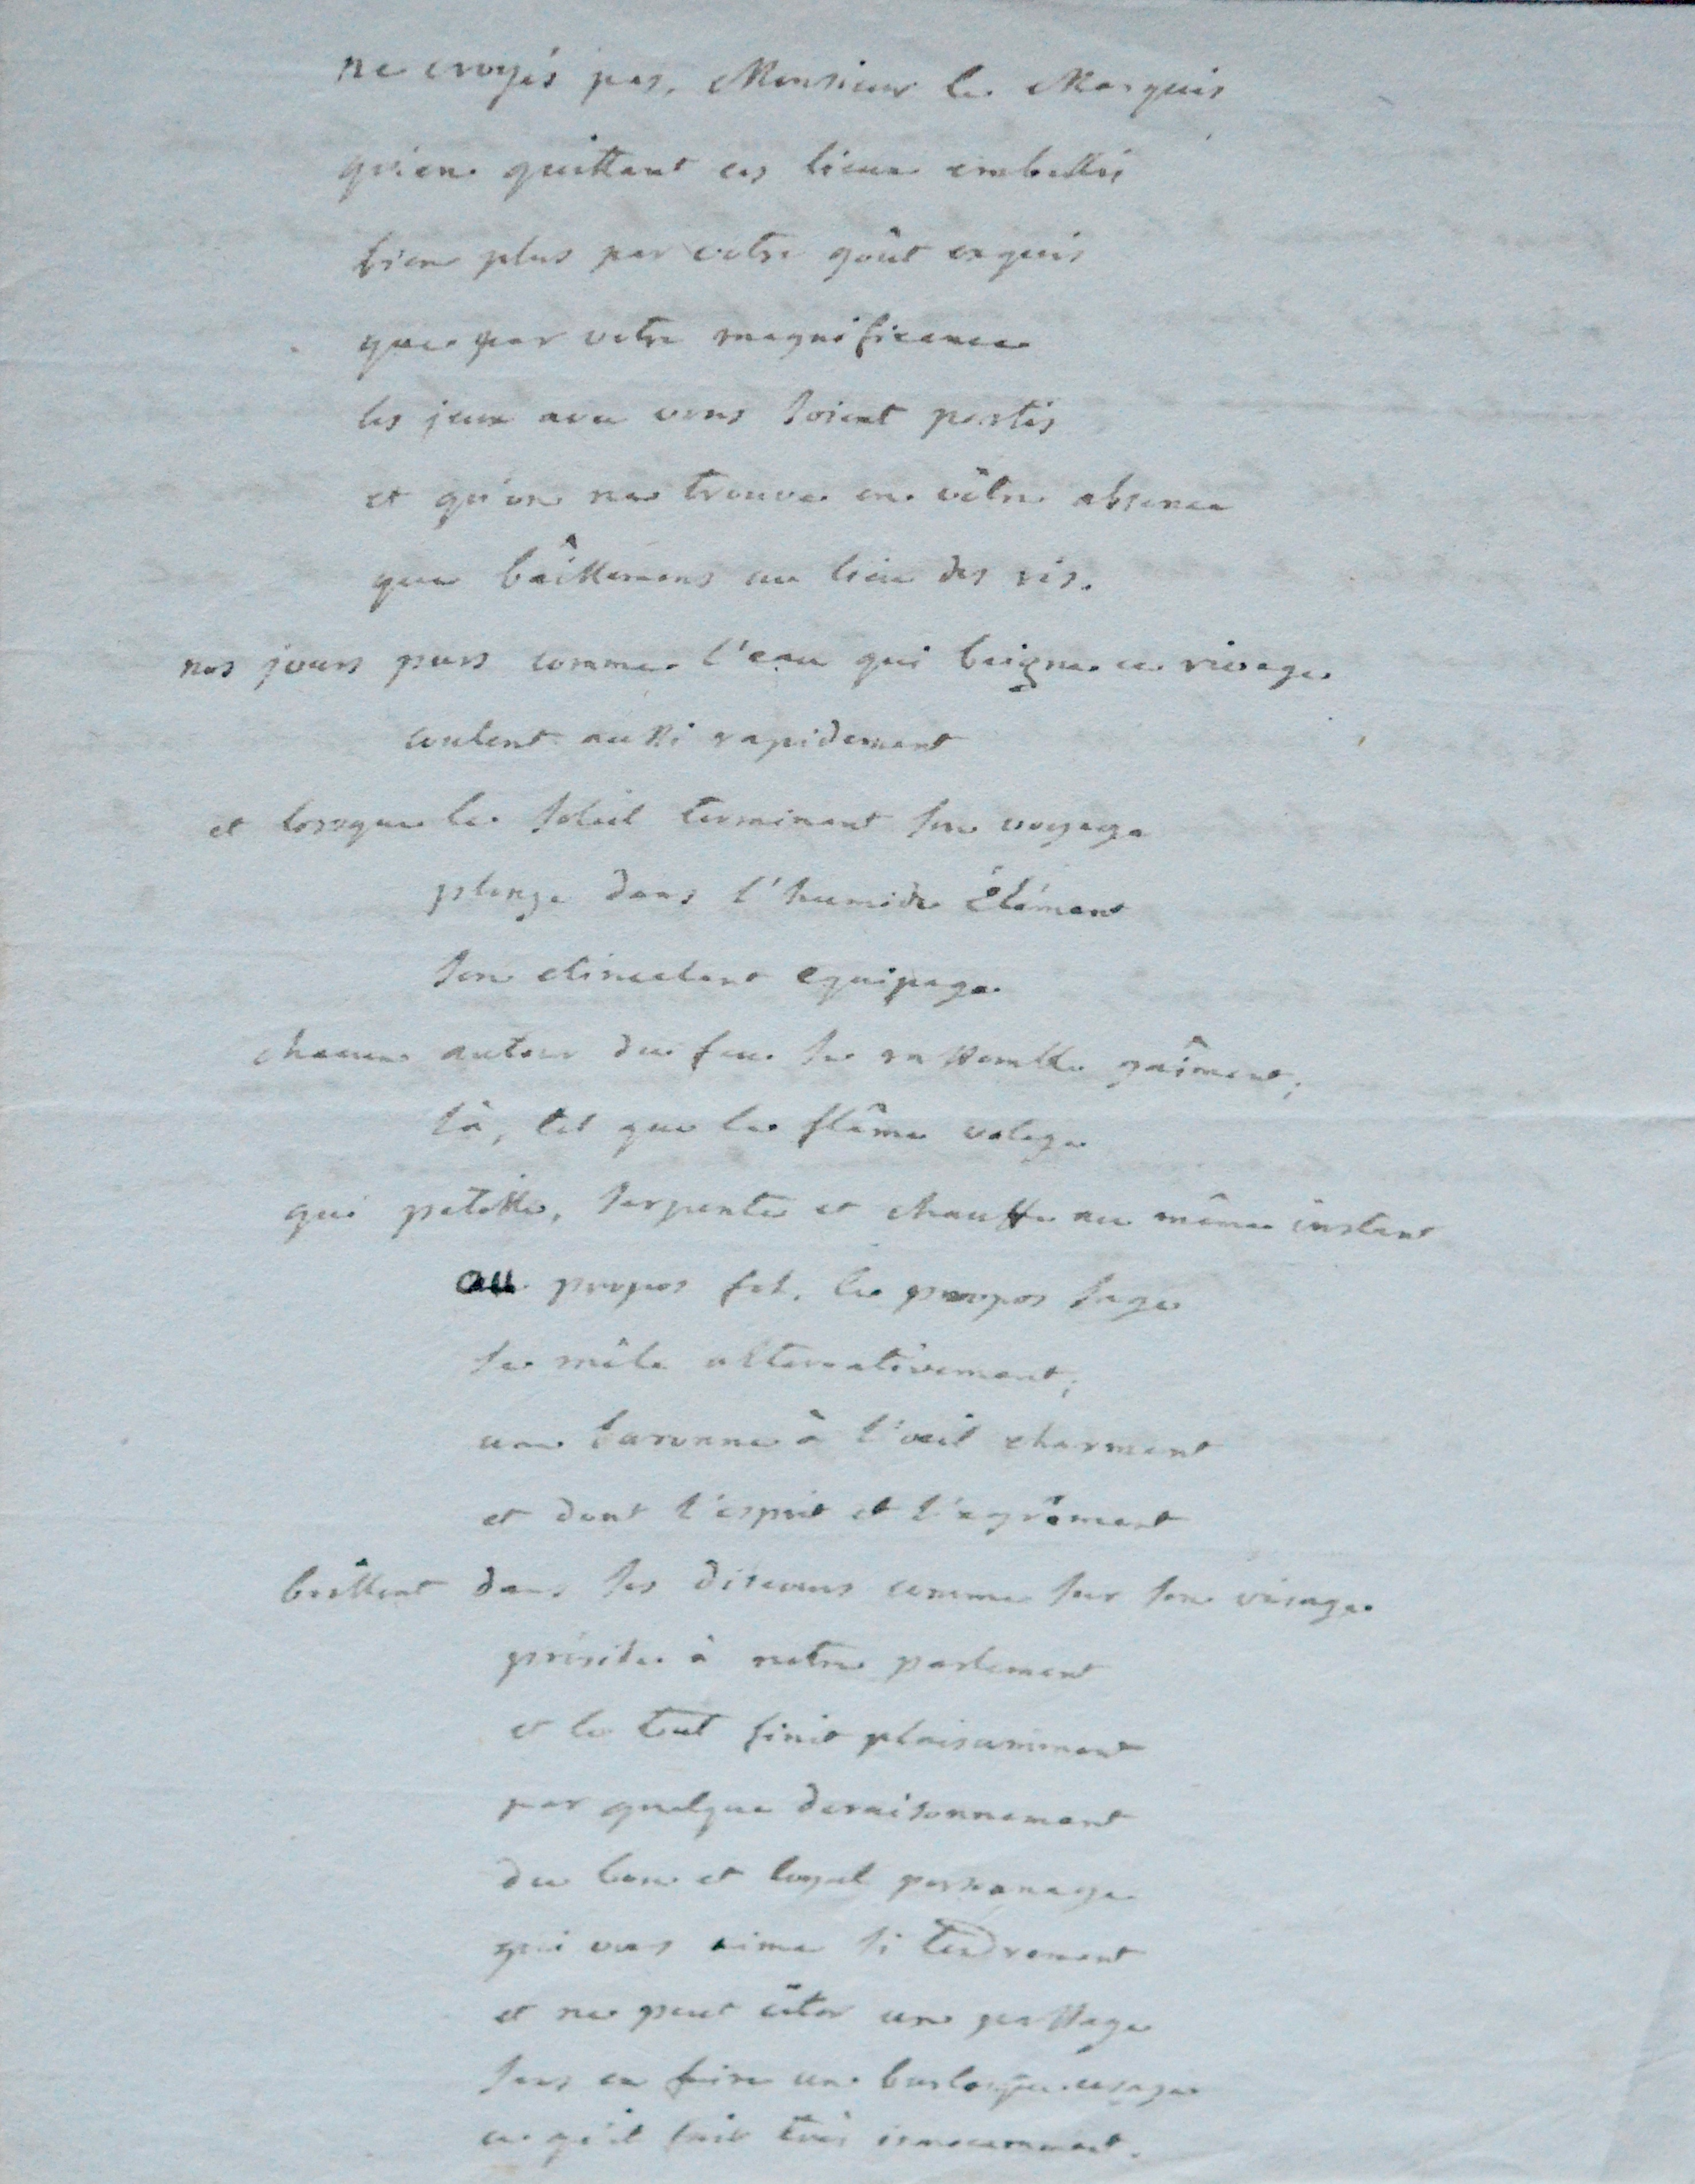 ne croyés pas, Monsieur le Marquis
qu'en quittant ces lieux embellis
bien plus par votre goût exquis
que par votre magnificence
les jeux avec vous soient partis
et qu'on ne trouve en vôtre absence
que bâillemens au lieu des ris.
nos jours purs comme l'eau qui baigne ce rivage
coulent aussi rapidement
et lorsque le soleil terminant son voyage
plonge dans l'humide Élément
son etincelant equipage
chacun autour du feu se rassemble gaîment;
là, tel que la flâme volage
qui petille, serpente et chauffe au même instant
au propos fol, le propos sage
se mêle alternativement;
une baronne à l'oeil charmant
et dont l'esprit et l'agrément
brillent dans ses discours comme sur son visage
préside à notre parlement
et le tout finit plaisamment
par quelque deraisonnement
du bon et loyal personnage
qui vous aime si tendrement
et ne peut citer un passage
sans en faire un burlesque usage
ce qu'il fait très innocemment.